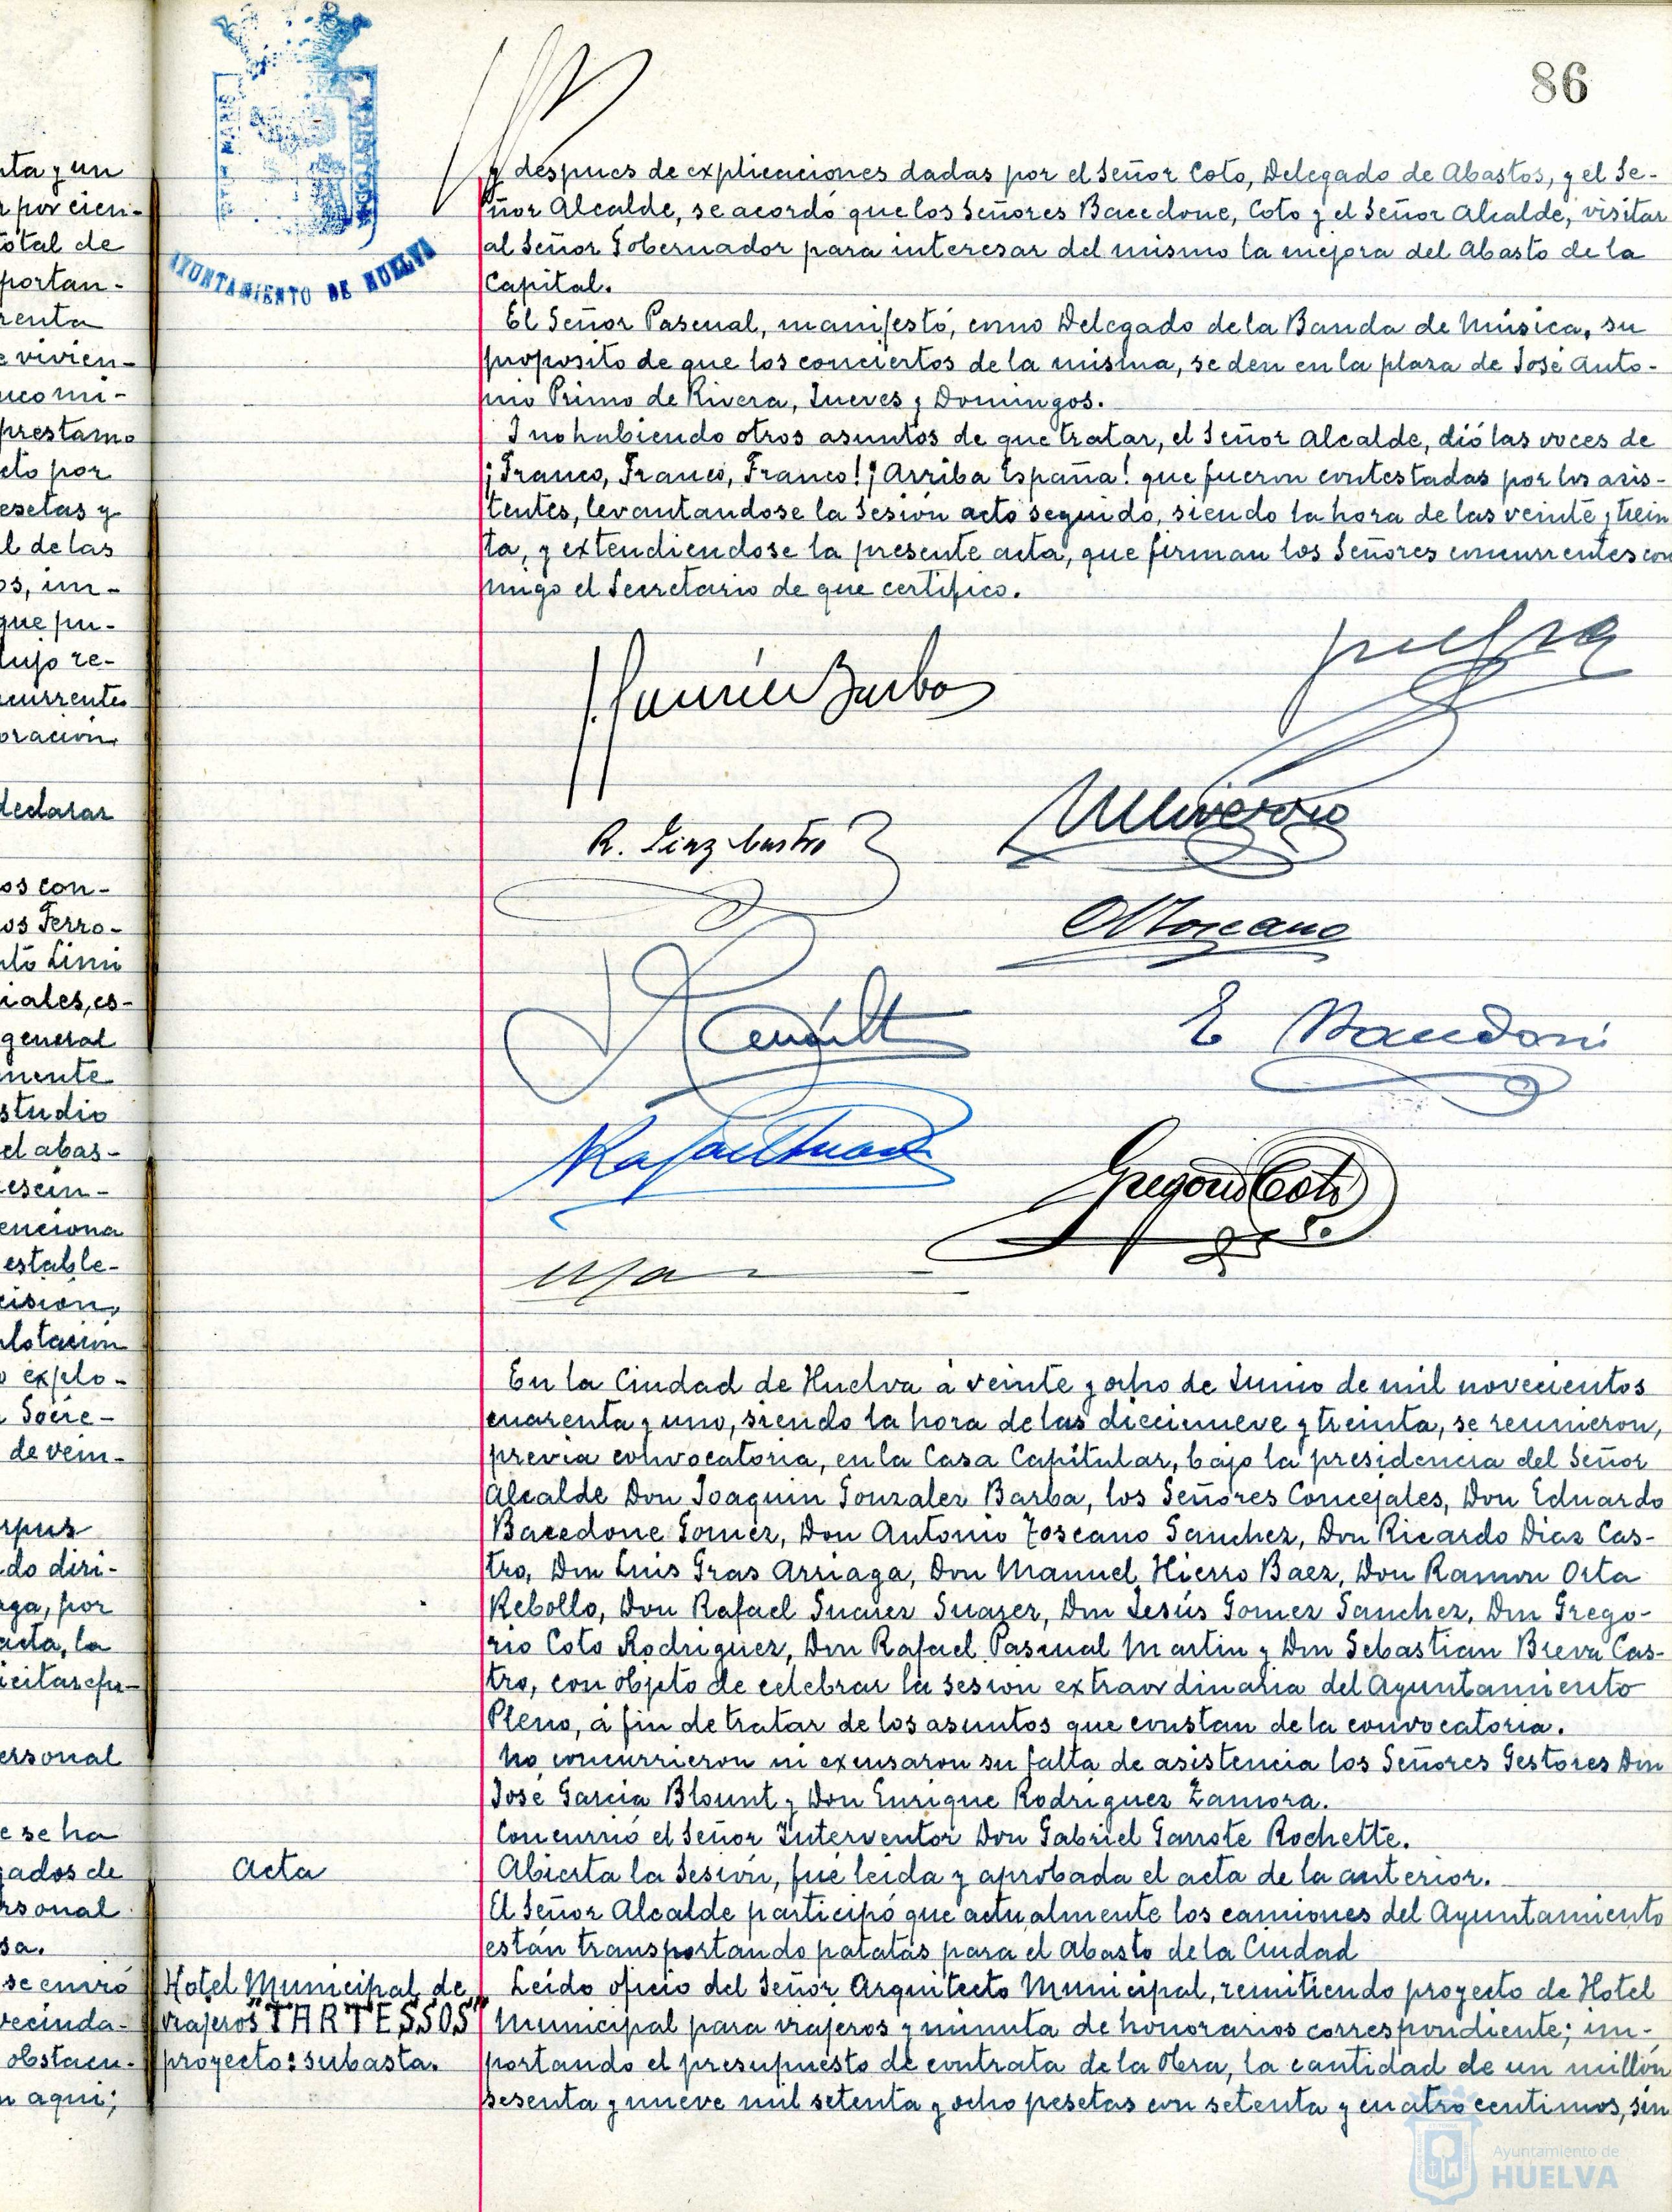 86
AYUNTAMIENTO DE HUELVA
ta y un
r por cien-
total de
portan-
renta
e vivien-
prestamo
cto por
esetas y
l de las
os, im-
que pu-
dujo re-
currentes
oración,
declarar
os con-
os Ferro-
iales, es-
general
mente
studio
el abas-
enciona
estable-
cision,
plotación
o explo-
Socie-
de vein-
rpus
do diri-
rga, por
acta, la
ersonal
e se ha
gados de
rsonal
sa.
se envió
vecinda-
obstacu-
n aqui;
y despues de explicaciones dadas por el Señor Coto, Delegado de Abastos, y el Se-
ñor Alcalde, se acordó que los Señores Bacedone, Coto y el Señor Alcalde, visitar
al Señor Gobernador para interesar del mismo la mejora del Abasto de la
Capital.
El Señor Pascual, manifestó, como Delegado de la Banda de Música, su
proposito de que los conciertos de la misma, se den en la plaza de José Anto-
nio Primo de Rivera, Jueves y Domingos.
Y no habiendo otros asuntos de que tratar, el Señor Alcalde, dió las voces de
¡Franco, Franco, Franco! ¡Arriba España! que fueron contestadas por los asis-
tentes, levantandose la Sesión acto seguido, siendo la hora de las veinte y trein
ta, y extendiendose la presente acta, que firman los Señores concurrentes con
migo el Secretario de que certifico.
R. Diaz Castro
A Toscano
E Bacedone
Rafael Suarez
Gregorio Coto
En la Ciudad de Huelva á veinte y ocho de Junio de mil novecientos
cuarenta y uno, siendo la hora de las diecinueve y treinta, se reunieron,
previa convocatoria, en la Casa Capitular, bajo la presidencia del Señor
Alcalde Don Joaquin Gonzalez Barba, los Señores Concejales, Don Eduardo
Bacedone Gomez, Don Antonio Toscano Sanchez, Don Ricardo Diaz Cas-
tro, Don Luis Gras Arriaga, Don Manuel Hierro Baez, Don Ramon Orta
Rebollo, Don Rafael Suarez Suarez, Don Jesús Gomez Sanchez, Don Grego-
rio Coto Rodriguez, Don Rafael Pascual Martin y Don Sebastian Breva Cas-
tro, con objeto de celebrar la sesion extraordinaria del Ayuntamiento
Pleno, á fin de tratar de los asuntos que constan de la convocatoria.
No concurrieron ni excusaron su falta de asistencia los Señores Gestores Don
José Garcia Blount y Don Enrique Rodriguez Zamora.
Concurrió el Señor Interventor Don Gabriel Garrote Rochette.
Acta
Abierta la Sesión, fué leida y aprobada el acta de la anterior.
El Señor Alcalde participó que actualmente los camiones del Ayuntamiento
están transportando patatas para el Abasto de la Ciudad
Hotel Municipal de
viajeros "TARTESSOS"
proyecto: subasta.
Leido oficio del Señor Arquitecto Municipal, remitiendo proyecto de Hotel
Municipal para viajeros y minuta de honorarios correspondiente; im-
portando el presupuesto de contrata de la Obra, la cantidad de un millón
sesenta y nueve mil setenta y ocho pesetas con setenta y cuatro centimos, sin
Ayuntamiento de
HUELVA